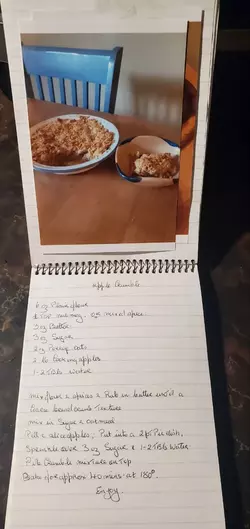 Apple Crumble
4 oz Plain flour
1 Tsp nutmeg. or mixed spice.
3 oz Butter
3 oz Sugar
2 oz Porage oats
2 lb Baking apples
1-2 Tbls Water
mix flour & spices & Rub in butter until a
bread crumb Texture
mix in Sugar & oatmeal
Peel & slice apples, Put into a 2pt Pie dish,
Sprinkle over 3 oz Sugar & 1-2 Tbls Water.
Put Crumble mixture on Top
Bake for approx 40 mins at 180°.
Enjoy